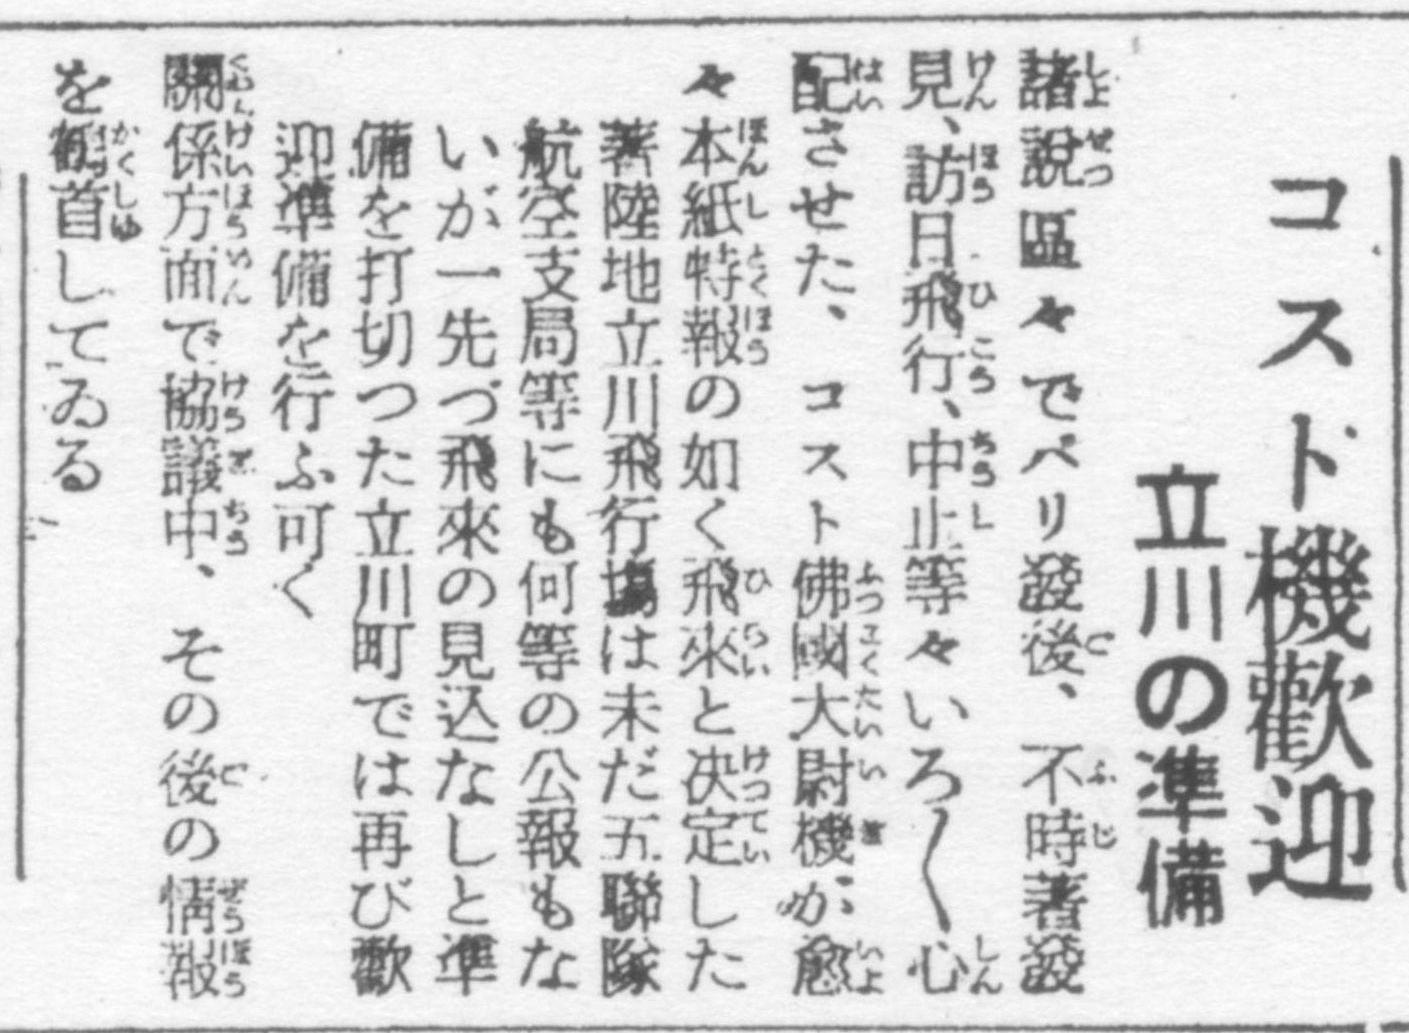 コスト機歡迎
立川の準備
諸説區々でペリ發後、不時著發
見、訪日飛行、中止等々いろ〱心
配させた、コスト佛國大尉機が、愈
々本紙特報の如く飛來と決定した
著陸地立川飛行場は未だ五聯隊
航空支局等にも何等の公報もな
いが一先づ飛來の見込なしと準
備を打切つた立川町では再び歡
迎準備を行ふ可く
關係方面で協議中、その後の情報
を鶴首してゐる